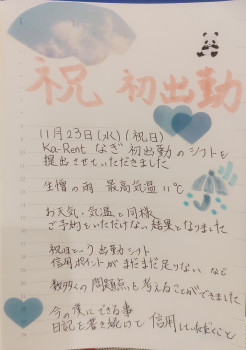 祝 初出勤
11月23日(水)(祝日)
Ka-Rent なぎ 初出勤のシフトを
提出させていただきました
生憎の雨 最高気温 11℃
お天気・気温と同様
ご予約をいただけない結果となりました
祝日という出勤シフト
信用ポイントがまだまだ足りない など
数多くの問題点も考えることができました
今の僕にできる事
日記を書き続けて 信用していただくこと